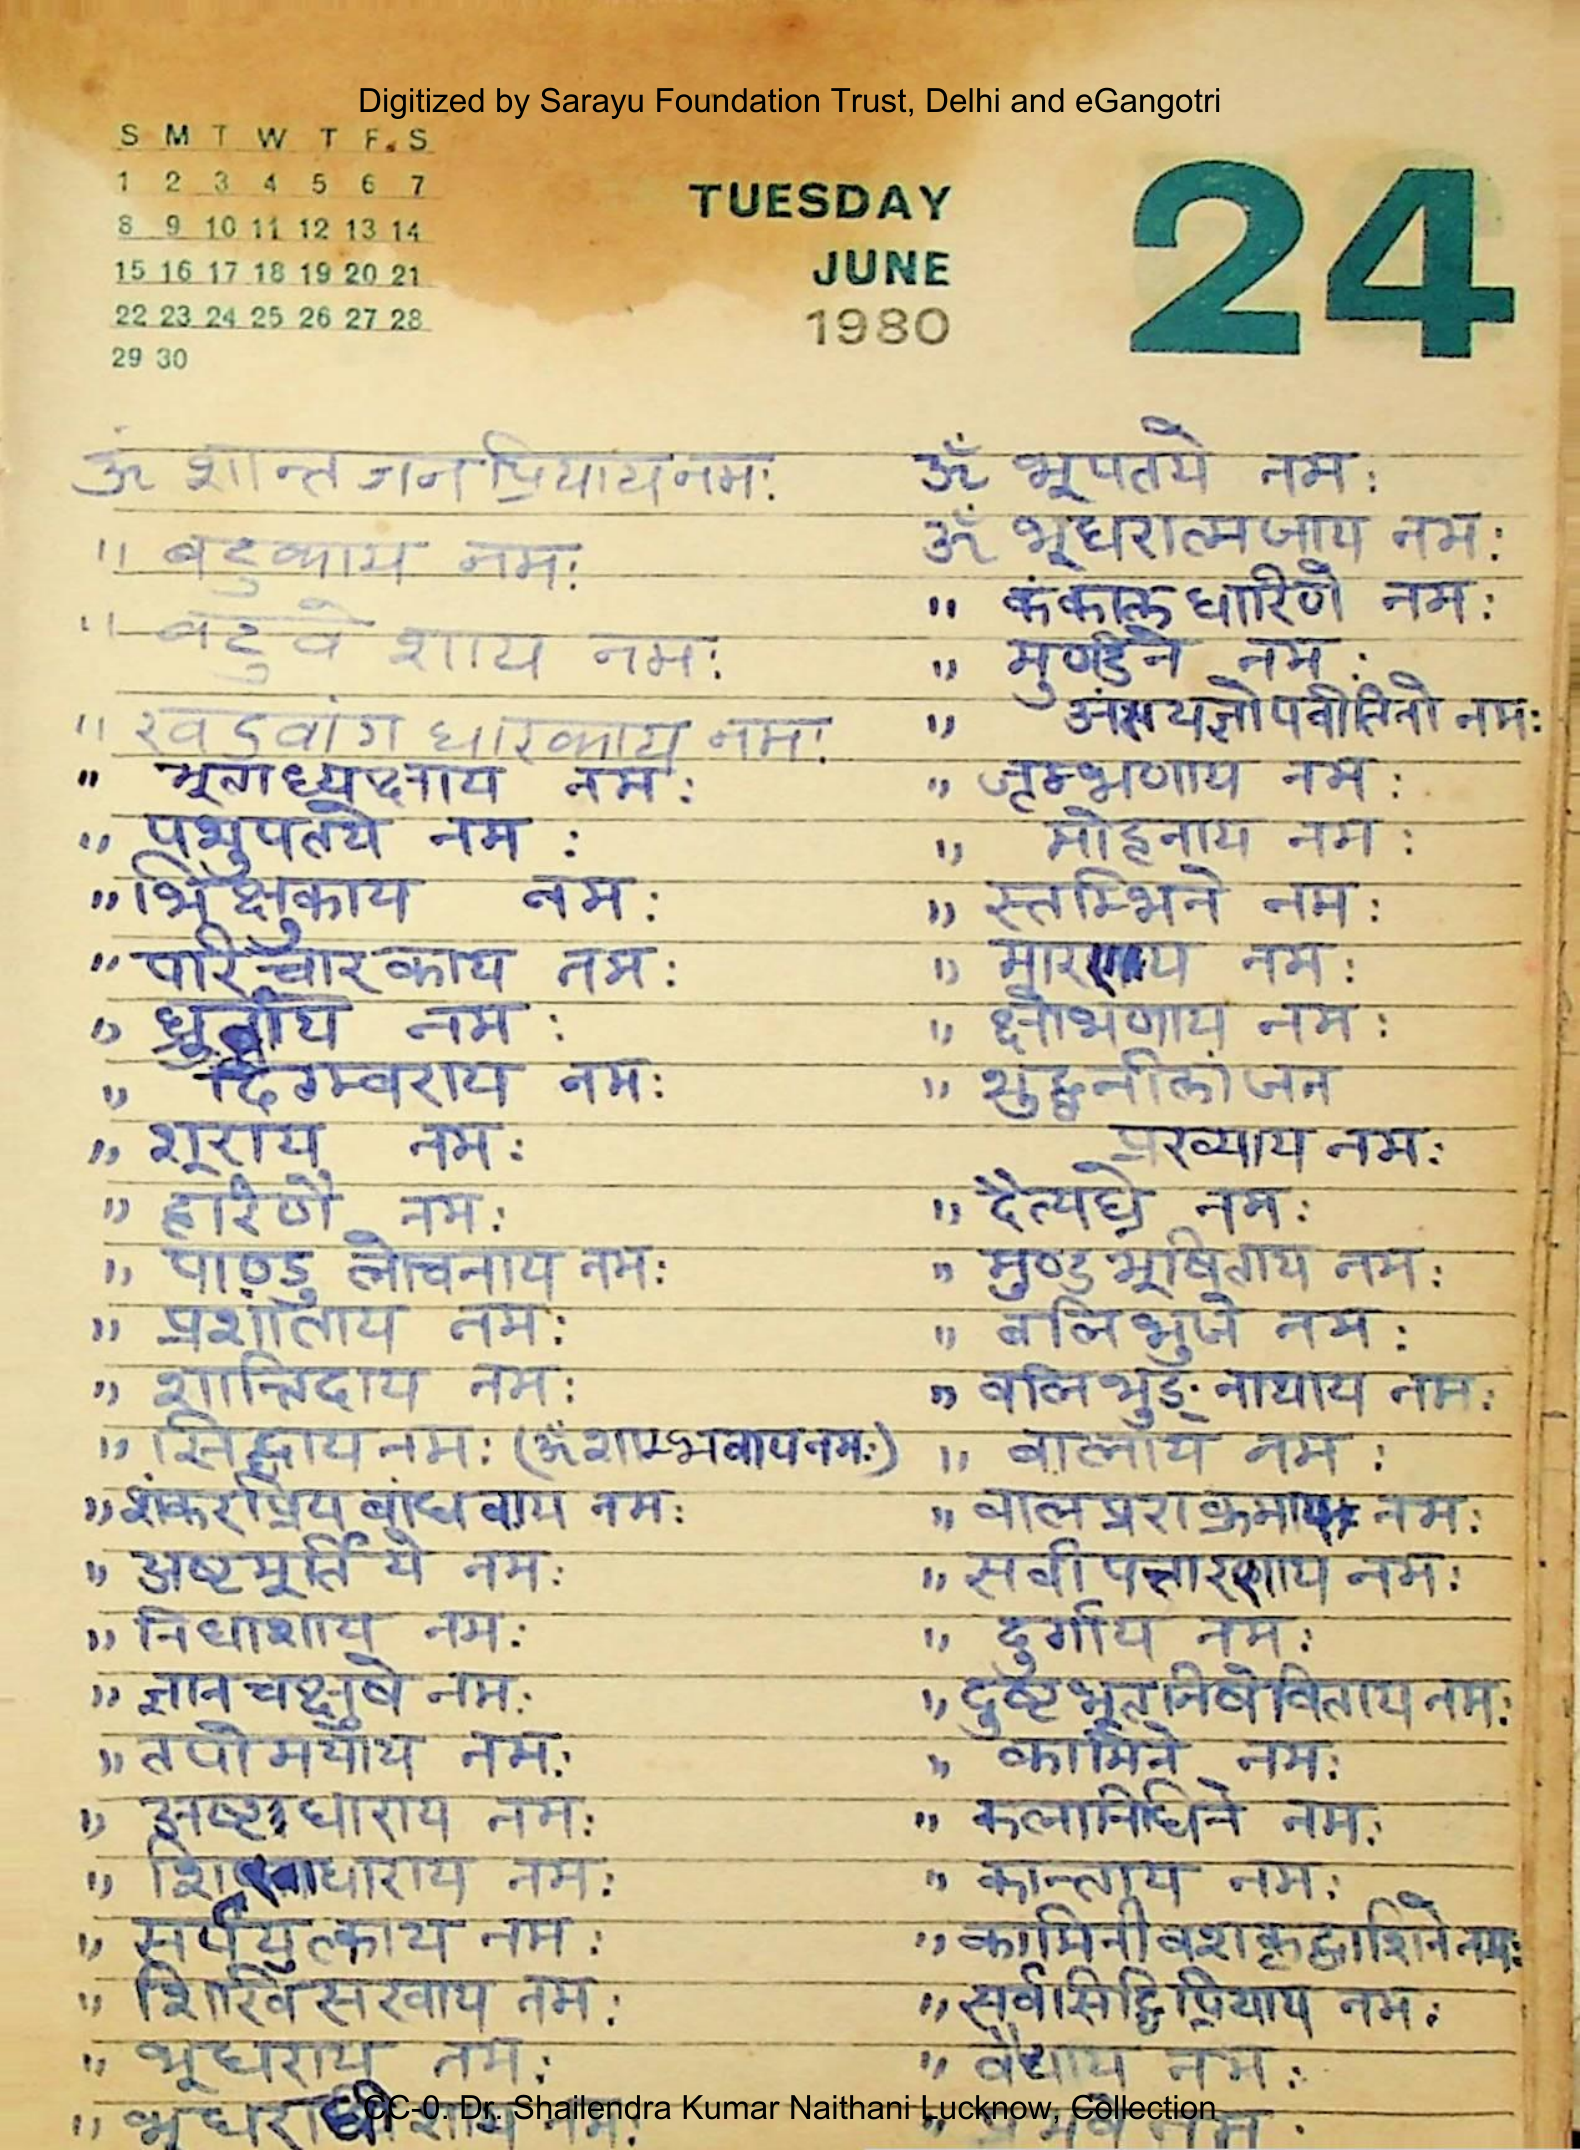 Digitized by Sarayu Foundation Trust, Delhi and eGangotri
S M T W T F. S
1 2 3 4 5 6 7
8 9 10 11 12 13 14
15 16 17 18 19 20 21
22 23 24 25 26 27 28
29 30
TUESDAY
JUNE
1980
24
ॐ शान्त जन प्रियाय नमः
" बटुकाय नमः
" बटुवे शाय नमः
" खडवांग धारकाय नमः
" भूताध्यक्षाय नमः
" पशुपतये नमः
" भिक्षुकाय नमः
" परिचारकाय नमः
" नमः
" दिगम्वराय नमः
" शूराय नमः
" हरिणे नमः
" पाण्डु लोचनाय नमः
" प्रशांताय नमः
" शान्तिदाय नमः
" सिद्धाय नमः (ॐ शम्भवाय नमः)
" शंकर प्रिय बांधवाय नमः
" अष्टमूर्तिये नमः
" निधाशाय नमः
" ज्ञान चक्षुषे नमः
" तपोमयाय नमः
" अष्टाधाराय नमः
" नमः
" सर्पयुत्काय नमः
" शिखि सखाय नमः
" भूधराय नमः
" भूधराधीशाय नमः
ॐ भूपतये नमः
ॐ भूधरात्मजाय नमः
" कंकाल धारिणे नमः
" मुण्डिने नमः
" नमः
" जृम्भणाय नमः
" मोहनाय नमः
" स्तम्भिने नमः
" मारणाय नमः
" क्षोभणाय नमः
" शुद्धनीलांजन
प्रख्याय नमः
" दैत्यघ्ने नमः
" मुण्ड भूषिताय नमः
" वलि भुजे नमः
" वलि भुङ् नाथाय नमः
" वालाय नमः
" वाल पराक्रमाय नमः
" सर्वा पत्तारणाय नमः
" दुर्गाय नमः
" दुष्ट भूत निषेविताय नमः
" कामिने नमः
" कलानिधिने नमः
" कान्ताय नमः
" कामिनी वशकृद्वाशिने नमः
" सर्वसिद्धि प्रियाय नमः
" वैद्याय नमः
" प्रभवे नमः
CC-0. Dr. Shailendra Kumar Naithani Lucknow, Collection